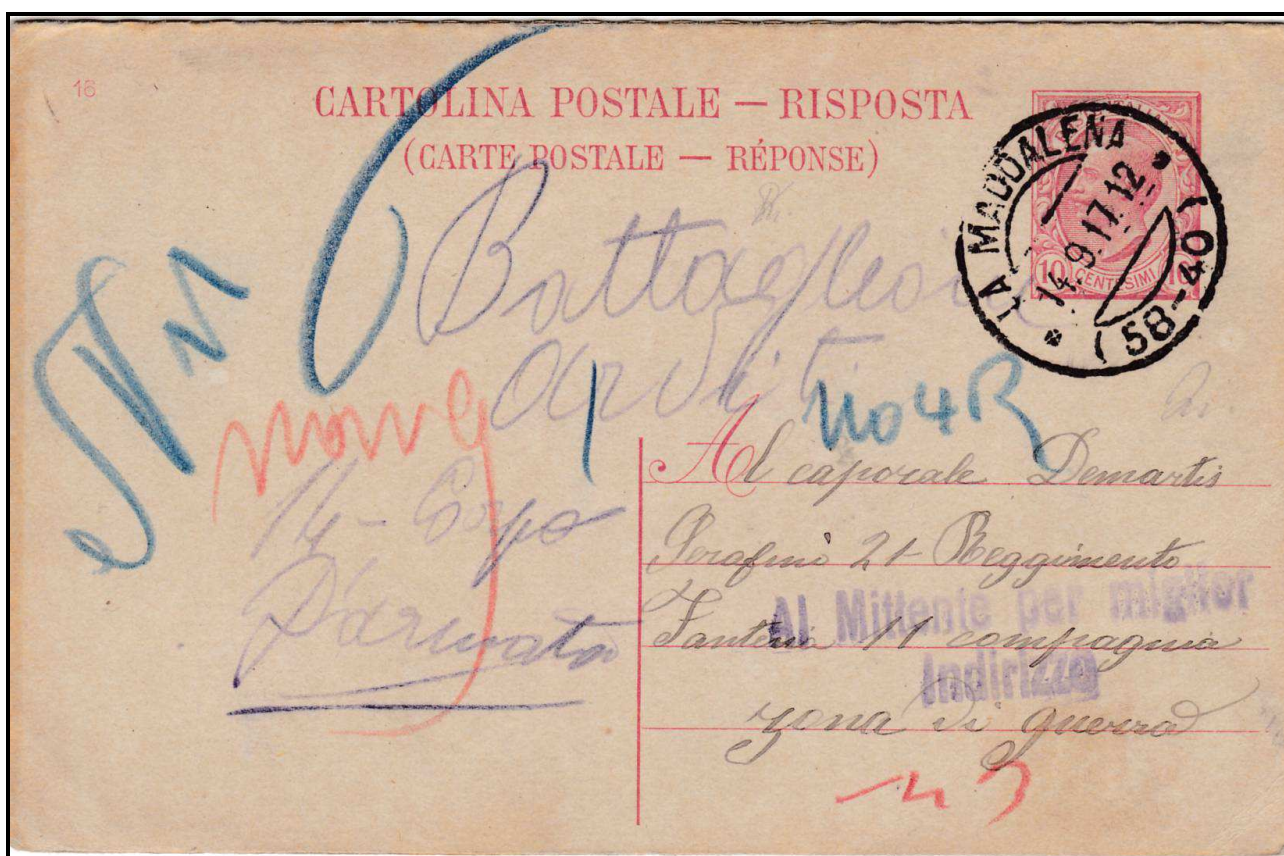 16
CARTOLINA POSTALE — RISPOSTA
(CARTE POSTALE — RÉPONSE)
LA MADDALENA
14.9.17.12
(58-40)
10 CENTESIMI 10
Battaglione
Arditi
no 4 R
14- Corpo
D'armata
Al caporale Demartis
Serafino 21 Reggimento
Fanteria 11 compagnia
zona di guerra
Al Mittente per miglior
Indirizzo